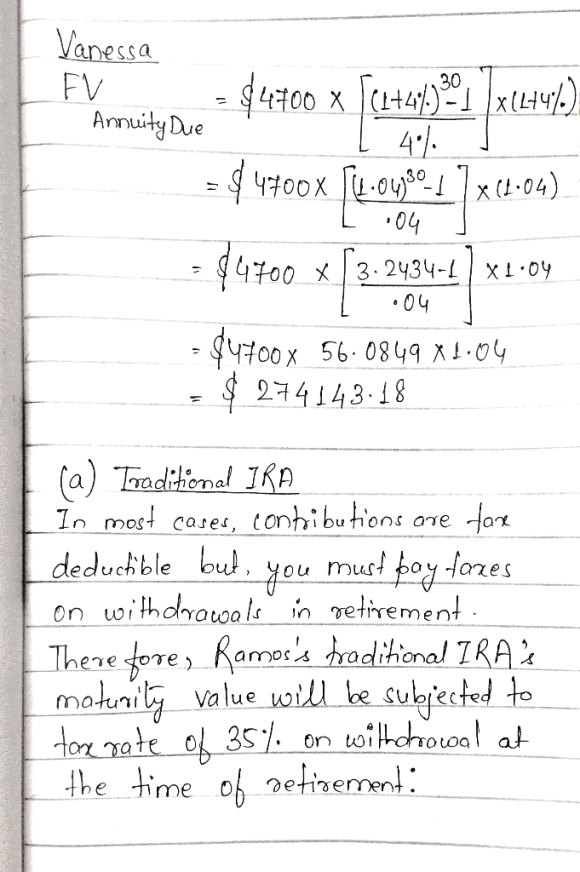 Vanessa
FV Annuity Due = $4700 x [(1+4%)^30-1 / 4%.] x (1+4%)
= $ 4700x [(1.04)^30-1 / .04] x (1.04)
= $4700 x [3.2434-1 / .04] x 1.04
= $4700x 56.0849 x 1.04
= $ 274143.18
(a) Traditional IRA
In most cases, contributions are tax
deductible but, you must pay taxes
on withdrawals in retirement.
Therefore, Ramos's traditional IRA's
maturity value will be subjected to
tax rate of 35%. on withdrawal at
the time of retirement: